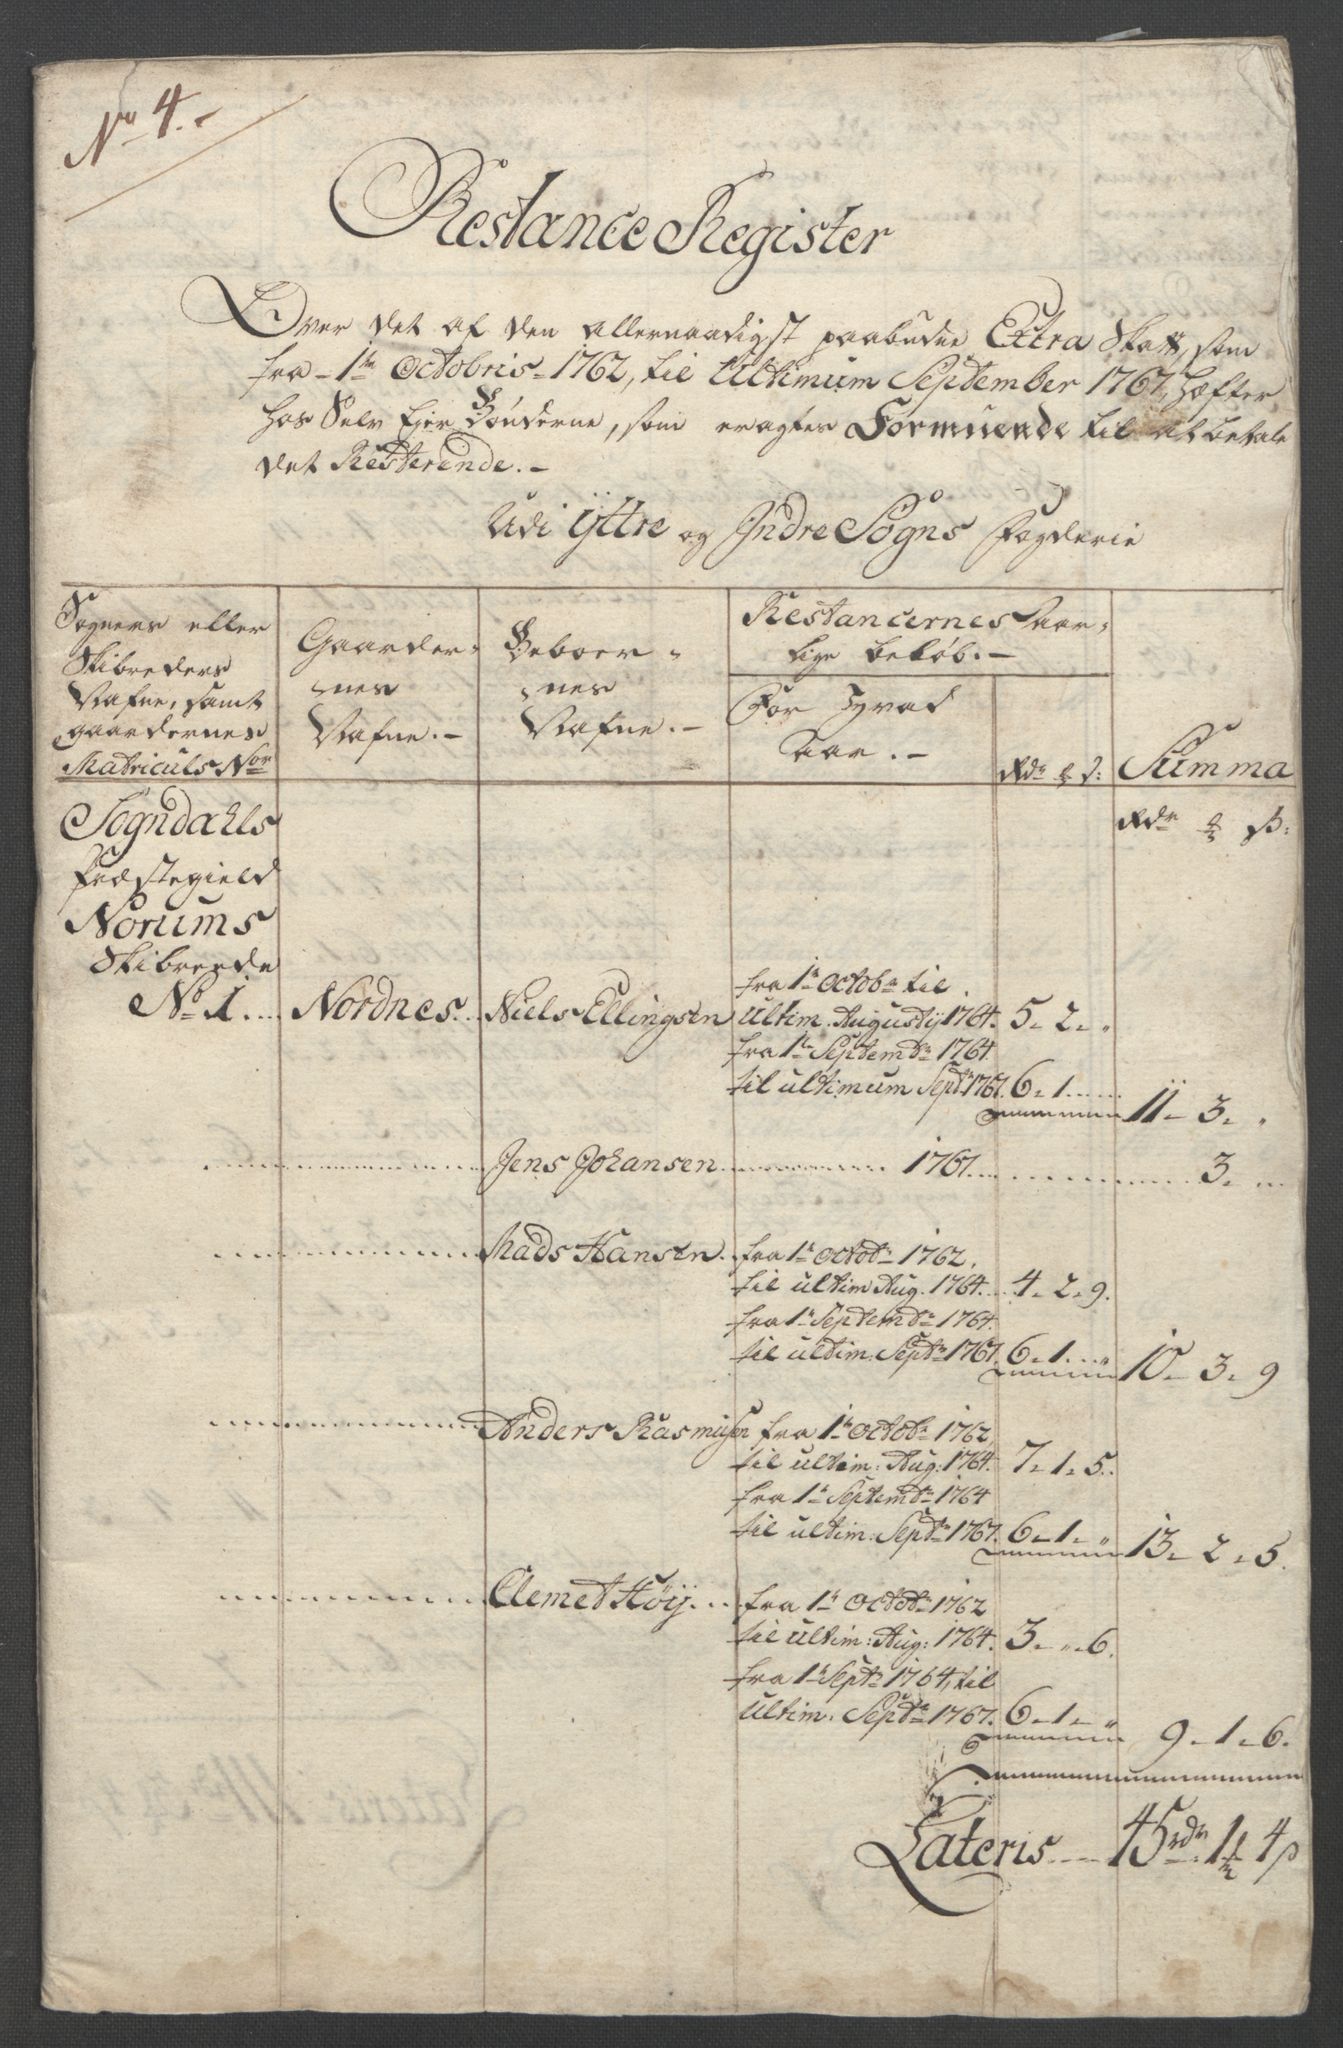 No 4.-
Restance Register
Over det af den allernaadigst paabudne Extra Skatt, som
fra 1te Octobris 1762, til Ultimum September 1767, hæfter
hos Selv Ejer Bønderne, som eragtes Formuende til at betale
det Resterende.-
Udi ÿttre og Indre Sogns Fogderie
Sognens eller
Skibreders
Nafne, samt
gaardernes
Matriculs Nor
Gaarder-
nes
Nafne.-
Beboer-
nes
Nafne.-
Restancernes Aar-
lige beløb.-
For Hvad
Aar.-
Rdr ß:
Summa
Rdr ß:
Sogndahls
Præstegield
Norums
Skibrede
No 1... Nordnes... Niels Ellingsen
fra 1te Octobr til
Ultim. Augustij 1764. 5-2-"
fra 1te Septembr 1764
til ultimum Septr 1767. 6-1..... 11-3-"
Jens Johansen 1767. 3-
Mads Hansen. fra 1te Octobr 1762,
til ultim Aug. 1764... 4-2-9.
fra 1te Septembr 1764
til ultim: Septr 1767. 6-1..." 10-3-9
Anders Rasmusen fra 1te Octobr 1762,
til ultim: Aug: 1764. 7-1-5.
fra 1te Septembr 1764
til ultim: Septr 1767. 6-1-" 13-2-5.
Clemet Høij... fra 1te Octobr 1762
til ultim: Aug: 1764. 3-"-6.
fra 1te Septr 1764, til
Ultim: Septr 1767. 6-1-" 9-1-6.
Lateris.... 45rdr 1 4ß